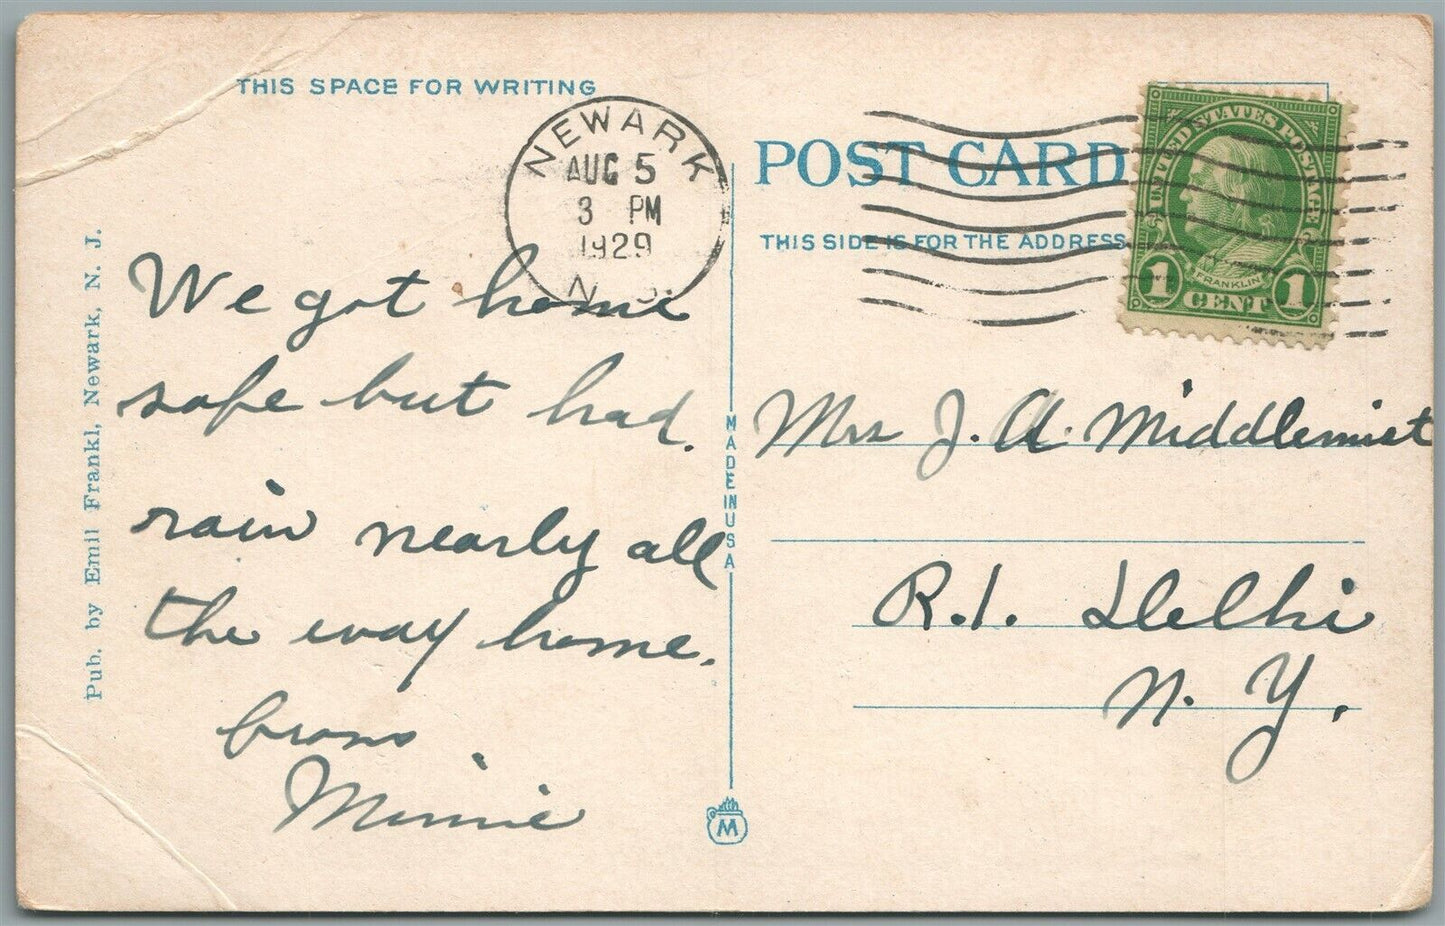 THIS SPACE FOR WRITING
NEWARK
AUG 5
3 PM
1929
N. J.
We got home
safe but had.
rain nearly all
the way home.
Minnie
Pub. by Emil Frankl, Newark, N. J.
MADE IN USA
M
POST CARD
THIS SIDE IS FOR THE ADDRESS
UNITED STATES POSTAGE
FRANKLIN
1 CENT 1
Mrs J. A. Middlemist
R.1. Delhi
N. Y.